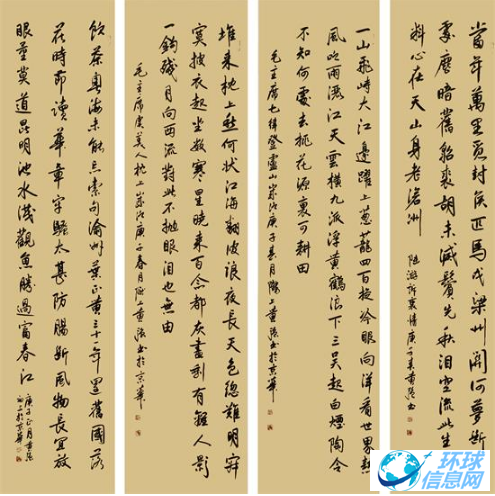 當年萬里覓封侯匹馬戍梁州關河夢斷
處塵暗舊貂裘胡未滅鬢先秋淚空流此生
料心在天山身老滄洲 陸游訴衷情庚子春黃强書
一山飛峙大江邊躍上蔥蘢四百旋冷眼向洋看世界熱
風吹雨灑江天雲橫九派浮黃鶴浪下三吳起白煙陶令
不知何處去桃花源裏可耕田
毛主席七律登廬山庚子春月隴上黃强書於京華
堆來枕上愁何狀江海翻波浪夜長天色總難明寂
寞披衣起坐數寒星曉來百念都灰盡剩有離人影
一鉤殘月向西流對此不拋眼淚也無由
毛主席虞美人枕上庚子春月隴上黃强書於京華
飲茶粵海未能忘索句渝州葉正黃三十一年還舊國落
花時節讀華章牢騷太甚防腸斷風物長宜放
眼量莫道昆明池水淺觀魚勝過富春江
庚子正月黃强
书於京華
环球
信息网